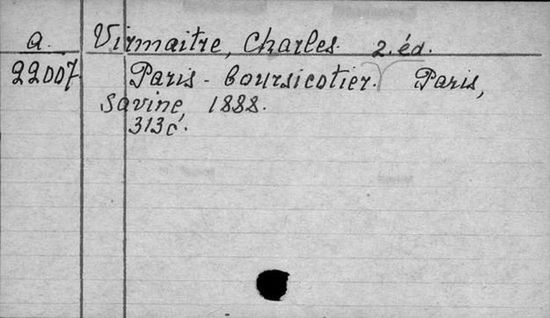 a. Virmaitre, Charles. 2. éd.
22007 Paris-boursicotier. Paris,
Savine, 1888.
313 c.